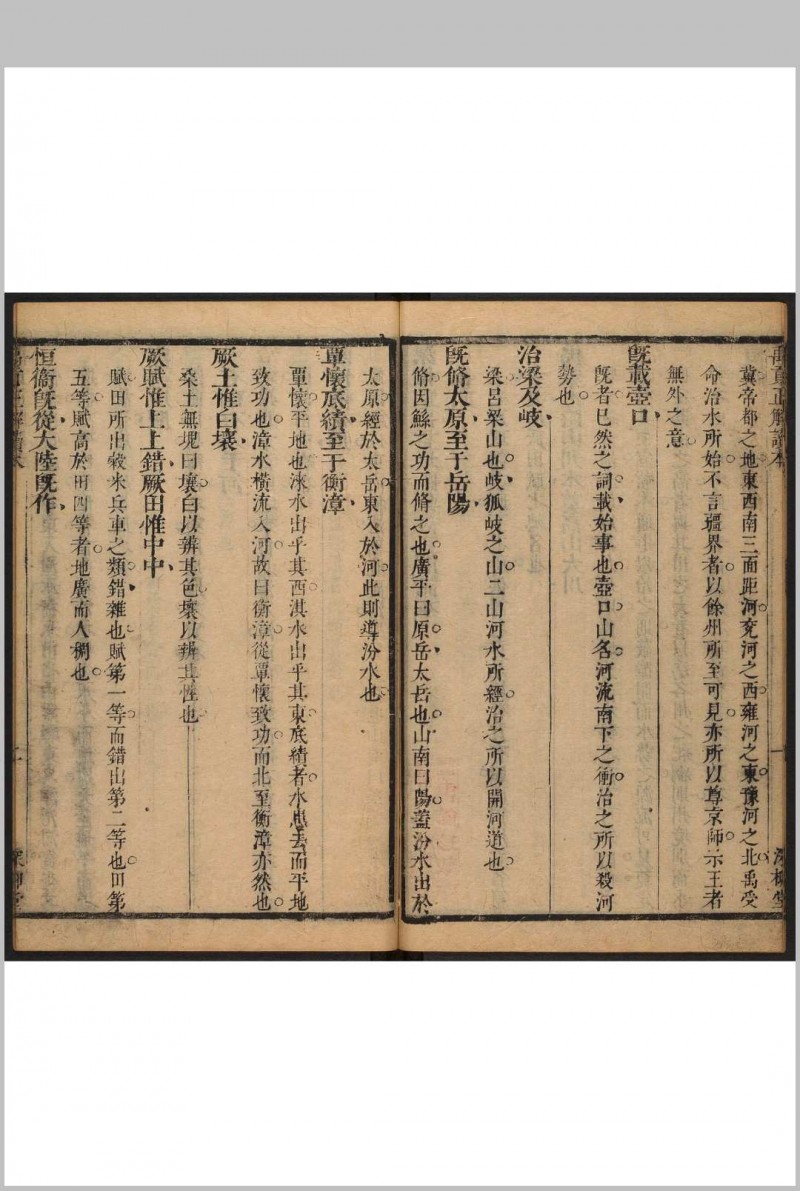 禹貢正解讀本
冀帝都之地東西南三面距河兗河之西雍河之東豫河之北禹受
命治水所始不言疆界者以餘州所至可見亦所以尊京師示王者
無外之意
既載壺口
既者已然之詞載始事也壺口山名河流南下之衝治之所以殺河
勢也
治梁及岐
梁呂梁山也岐狐岐之山二山河水所經治之所以開河道也
既脩太原至于岳陽
脩因鯀之功而脩之也廣平曰原岳太岳也山南曰陽蓋汾水出於
太原經於太岳東入於河此則導汾水也
覃懷厎績至于衡漳
覃懷平地也淶水出乎其西淇水出乎其東底績者水患去而平地
致功也漳水橫流入河故曰衡漳從覃懷致功而北至衡漳亦然也
厥土惟白壤
桑土無塊曰壤白以辨其色壤以辨其性也
厥賦惟上上錯厥田惟中中
賦田所出穀米兵車之類錯雜也賦第一等而錯出第二等也田第
五等賦高於田四等者地廣而人稠也
恒衞既從大陸既作